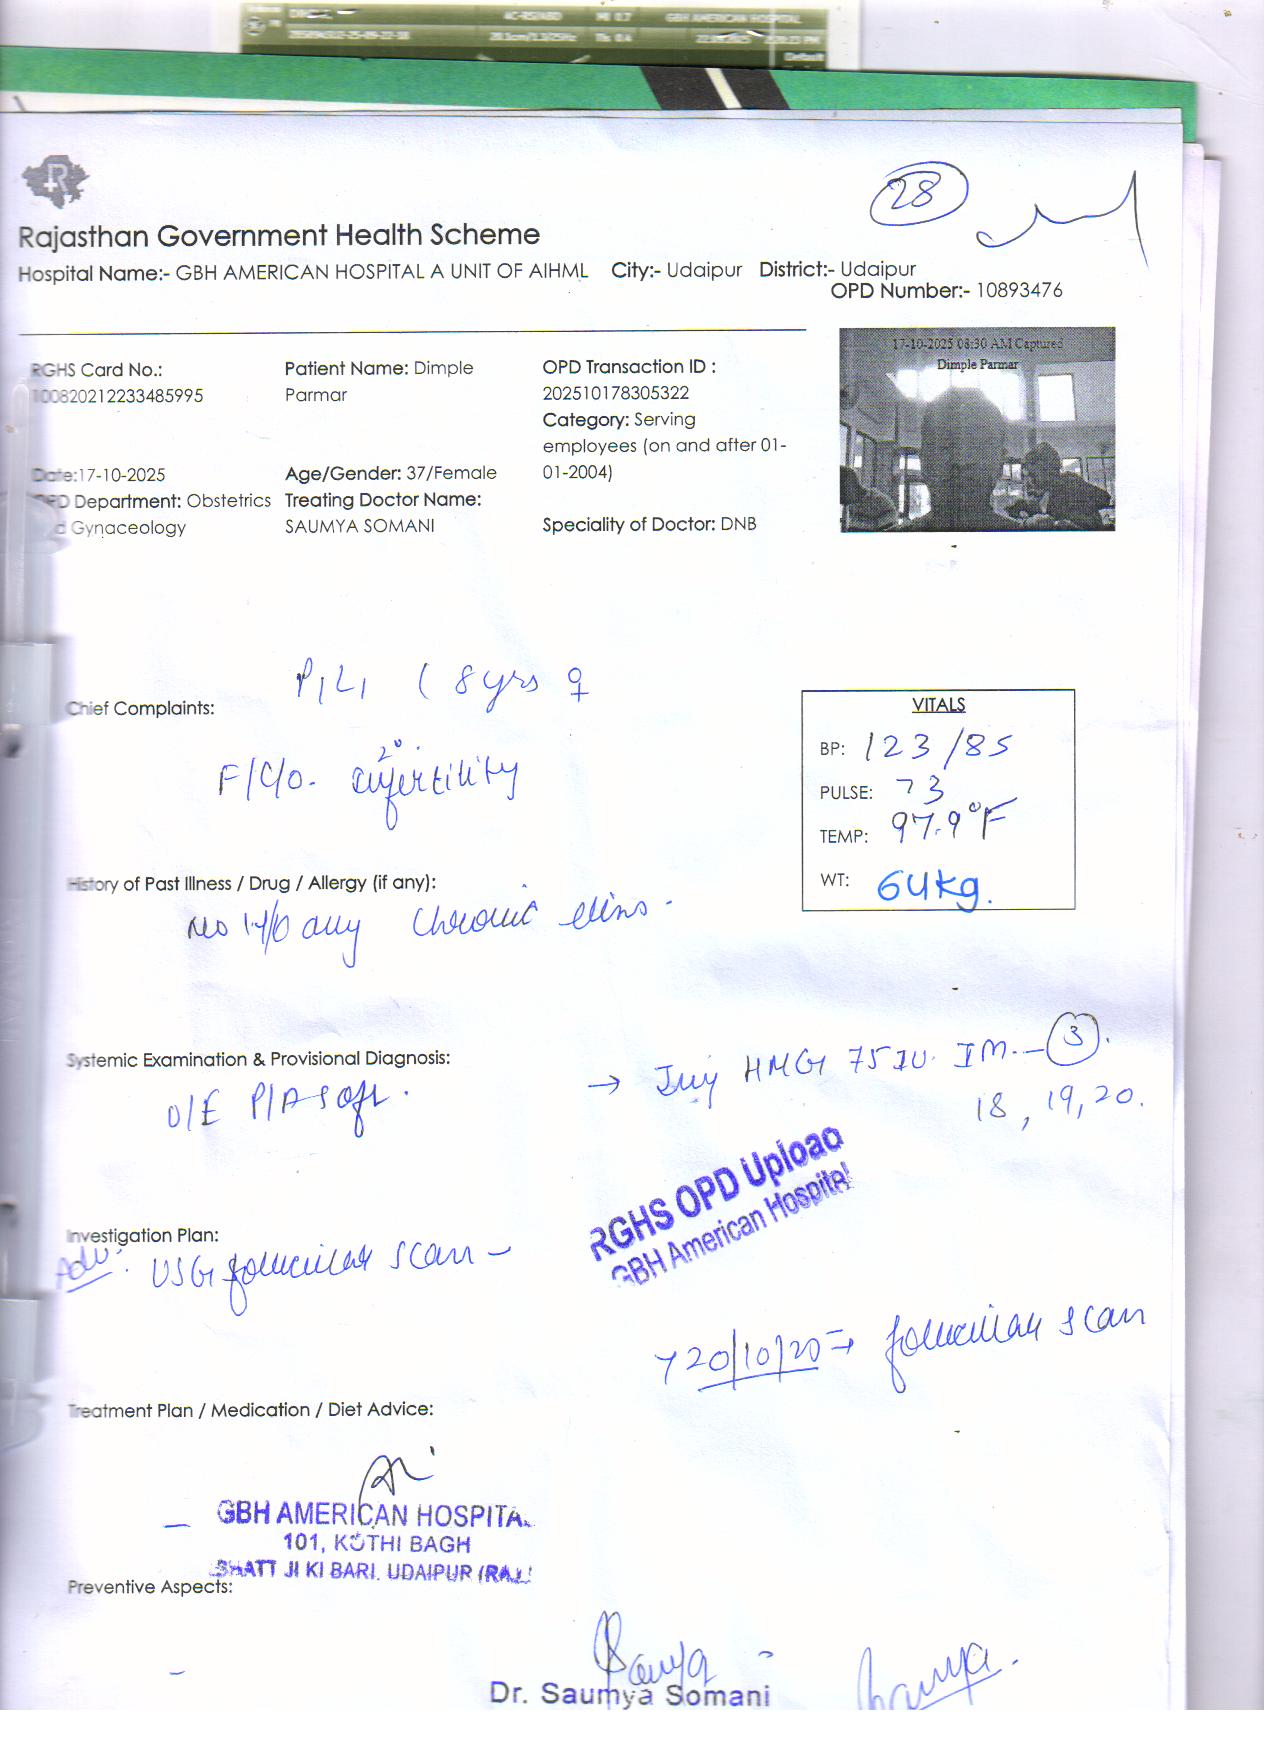 GBH AMERICAN HOSPITAL
Default
R
28
Rajasthan Government Health Scheme
Hospital Name:- GBH AMERICAN HOSPITAL A UNIT OF AIHML City:- Udaipur District:- Udaipur
OPD Number:- 10893476
17-10-2025 08:30 AM Captured
Dimple Parmar
RGHS Card No.: Patient Name: Dimple OPD Transaction ID :
100820212233485995 Parmar 202510178305322
Category: Serving
employees (on and after 01-
Date:17-10-2025 Age/Gender: 37/Female 01-2004)
OPD Department: Obstetrics Treating Doctor Name:
Gynaceology SAUMYA SOMANI Speciality of Doctor: DNB
P1L1 ( 8 yrs ♀
Chief Complaints:
F/C/O. 2° infertility
VITALS
BP: 123/85
PULSE: 73
TEMP: 97.9°F
WT: 64kg.
History of Past Illness / Drug / Allergy (if any):
No H/O any chronic illness.
Systemic Examination & Provisional Diagnosis:
O/E P/A Soft.
→ Inj HMG 75 IU. IM. — 3.
18, 19, 20.
RGHS OPD Upload
GBH American Hospital
Investigation Plan:
Adv: USG follicular scan –
20/10/20 → follicular scan
Treatment Plan / Medication / Diet Advice:
GBH AMERICAN HOSPITAL
101, KOTHI BAGH
BHATT JI KI BARI. UDAIPUR (RAJ.)
Preventive Aspects:
Saumya
Saumya.
Dr. Saumya Somani